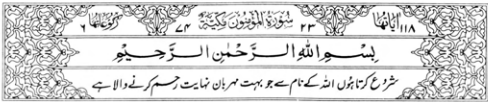 اٰیَاتُهَا ۱۱۸ ۲۳ سُوْرَةُ الْمُؤْمِنُوْنَ مَكِّيَّةٌ ۷۴ رُكُوْعَاتُهَا ۶
بِسْمِ اللهِ الرَّحْمٰنِ الرَّحِيْمِ
شروع کرتا ہوں اللہ کے نام سے جو بہت مہربان نہایت رحم کرنے والا ہے